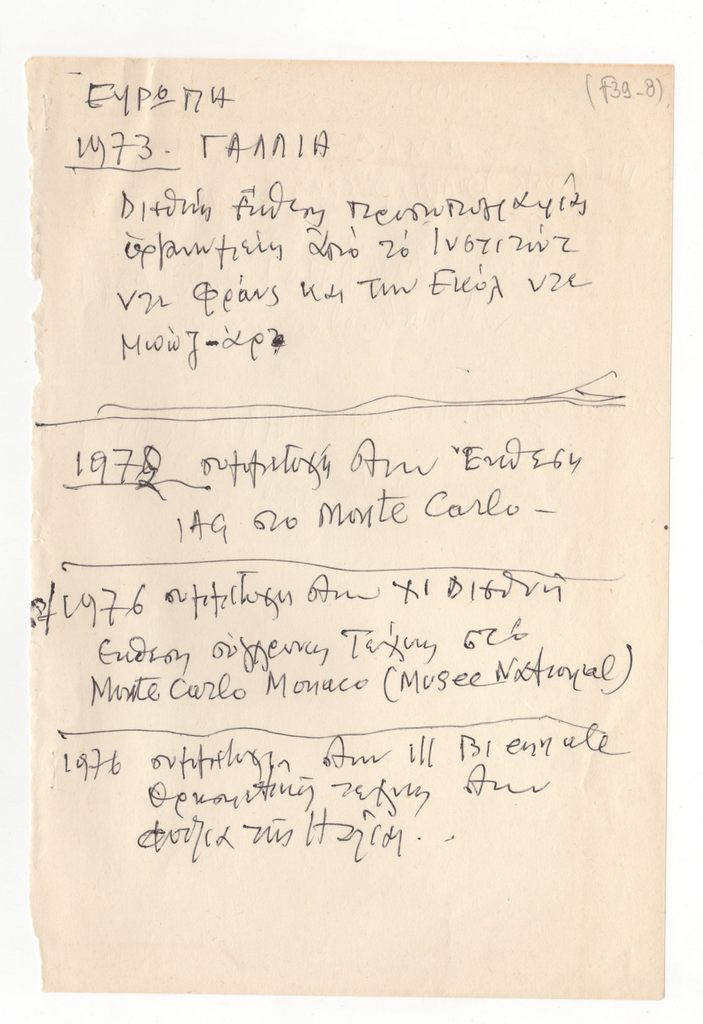 (F39-8)
ΕΥΡΩΠΗ
1973. ΓΑΛΛΙΑ
Διεθνής Έκθεση προσωπογραφίας
οργανωμένη από το Ινστιτούτ
ντε Φρανς και την Εκόλ ντε
Μπωζ-άρ
1972 συμμετοχή στην Έκθεση
IAG στο Monte Carlo -
1976 συμμετοχή στην XI Διεθνή
Έκθεση σύγχρονης Τέχνης στο
Monte Carlo Monaco (Musee National)
1976 συμμετοχή στην III Biennale
θρησκευτικής τέχνης στην
της Ιταλίας..